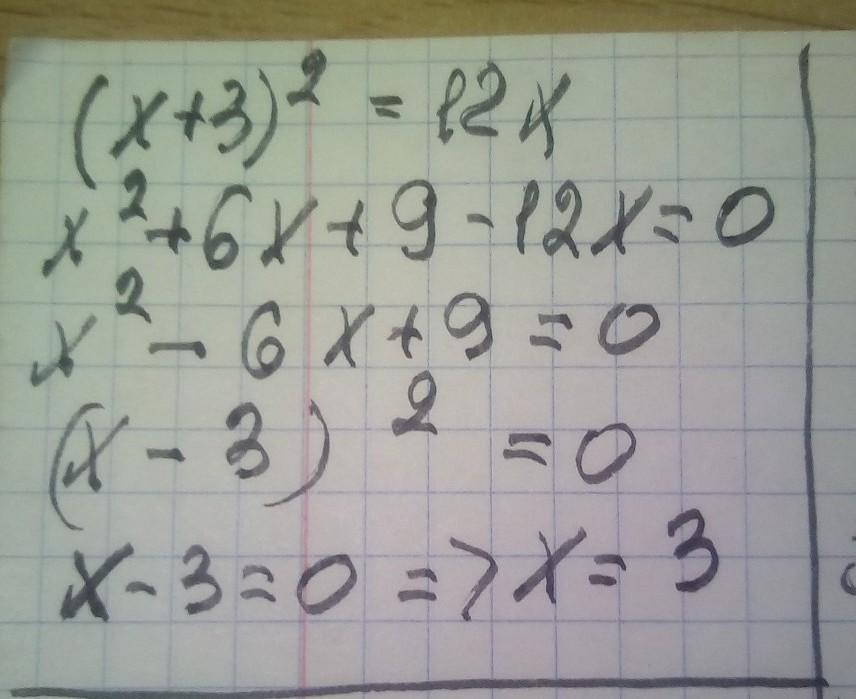 (x+3)² = 12x
x²+6x+9-12x=0
x²-6x+9=0
(x-3)²=0
x-3=0 => x=3